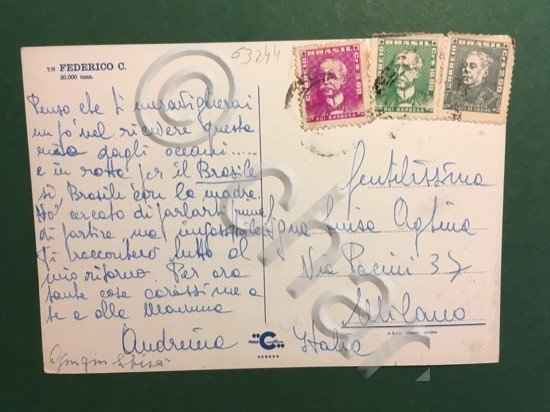 63244
T/N FEDERICO C.
20.000 tonn.
BRASIL
BRASIL
BRASIL
RUI BARBOSA
RUI BARBOSA
Penso che ti meraviglierai
un po' nel ricevere questa
mia dagli oceani....
e in rotta per il Brasile
si Brasile con la madre.
Ho cercato di parlarti prima
di partire, ma impossibile
Ti racconterò tutto al
mio ritorno. Per ora
tante cose carissime a
te e alla Mamma
Andreina
Gentilissima
Luisa
Via Pacini 37
Milano
Italia
"C"
GENOVA